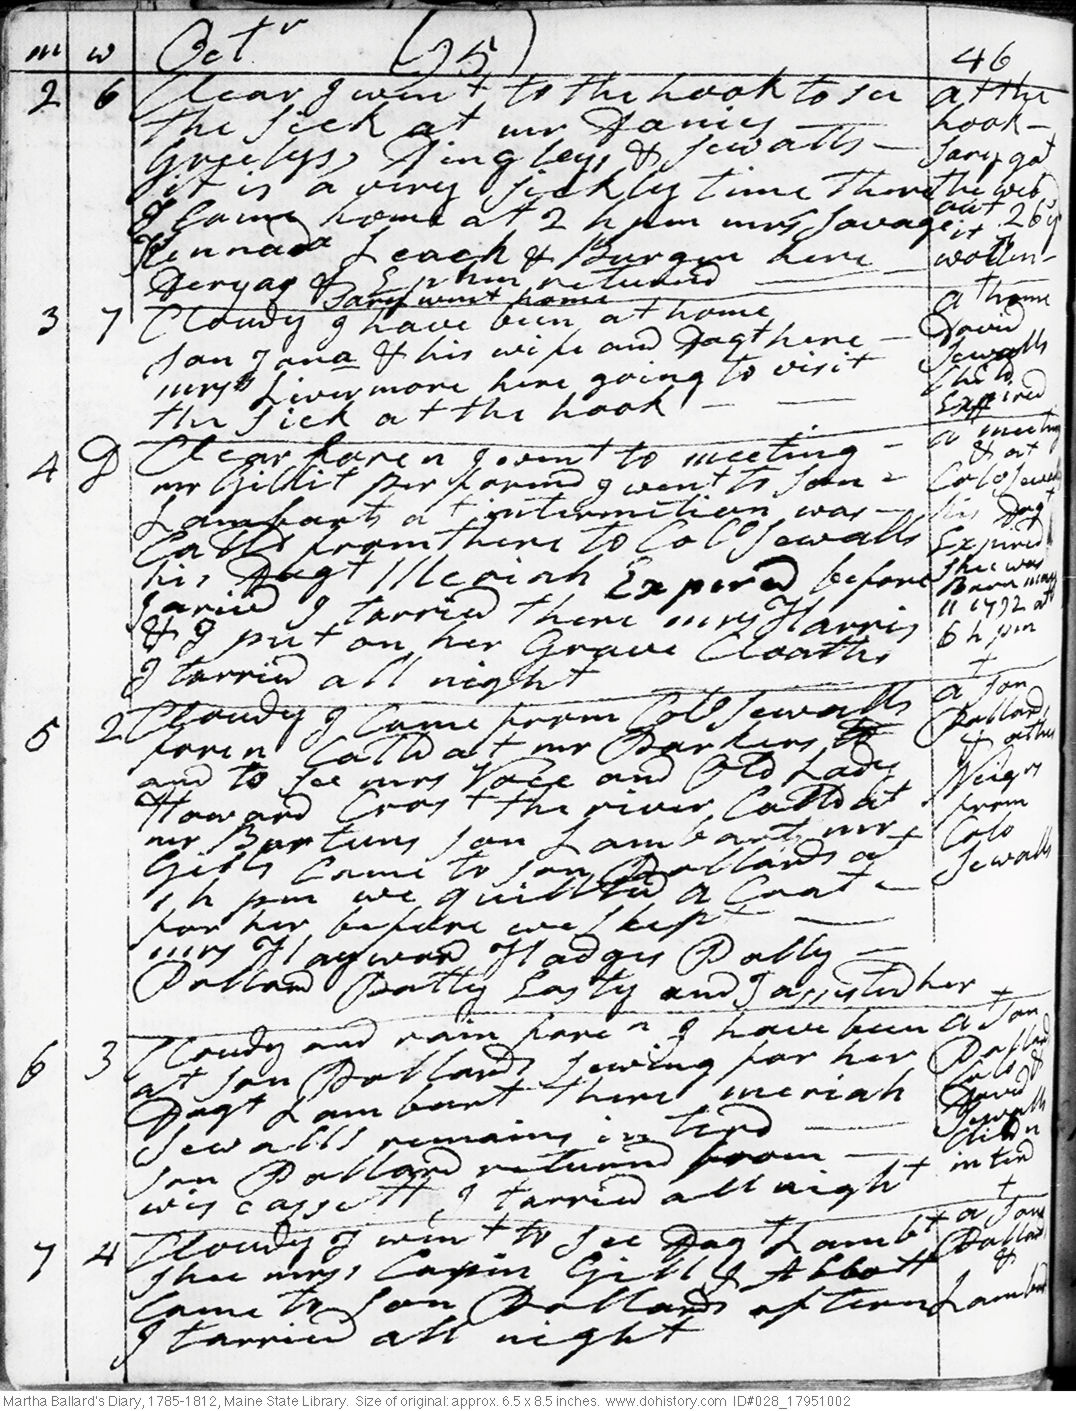 m w Octr (95) 46
2 6 Clear I went to the hook to see
the sick at mr Davies
Greelys, Dingleys & Sewalls -
it is a very sickly time there
I Came home at 2 h pm mrs Savage
Kennada Leach & Burgin here
& Ephm returned
Sary went home
at the
hook -
Sary got
the web
out 26 y
it
woollen -
3 7 Cloudy I have been at home
son Jona & his wife and Dagt here -
mrs Livermore here going to visit
the sick at the hook -
at home
David
Sewalls
Child
Expired
4 D Clear foren I went to meeting -
mr Gillit performd I went to son -
Lambarts at intermition was -
Calld from there to Colo Sewalls
his Dagt Meriah Expired before
I arivd I tarried there mrs Harris
& I put on her Grave Cloaths
I tarried all night
at meeting
& at
Colo Sewals
his Dagt
Expired
shee was
Born may
11 1792 at
6 h pm
5 2 Cloudy I Came from Colo Sewalls
foren Calld at mr Parkers
and to see mrs Voce and Old Lady
Howard Crost the river Calld at
mr Burtuns son Lambarts, mr
Gills Came to son Pollards at
1 h pm we quillted a Coat -
for her before we slept
mrs Hayward Hadges Polly -
Pollard Patty Easty and I assisted her
+
at son
Pollards
& other
Neigrs
from
Colo
Sewalls
6 3 Cloudy and rain foren I have been
at son Pollards sewing for her
Dagt Lambart there meriah
Sewalls remains interd
son Pollard returnd from -
wis cassett I tarried all night
+
at son
Pollards
Colo &
David
Sewalls
Childn
interd
7 4 Cloudy I went to see Dagt Lambt
shee mrss Capin Gill & Abbott
Came to son Pollards aftern
I tarried all night
+
at sons
Pollard
&
Lambard
Martha Ballard's Diary, 1785-1812, Maine State Library. Size of original: approx. 6.5 x 8.5 inches. www.dohistory.com ID#028_17951002